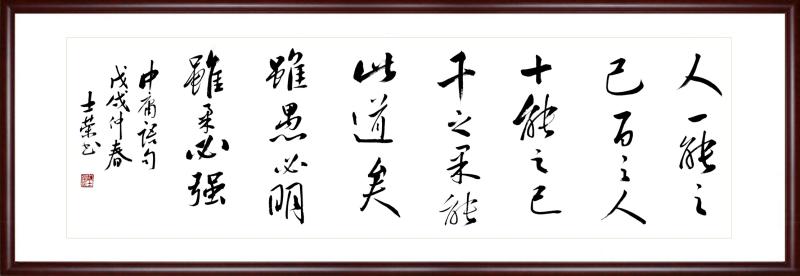 人一能之
己百之人
十能之己
千之果能
此道矣
雖愚必明
雖柔必强
中庸语句
戊戌仲春
士荣书